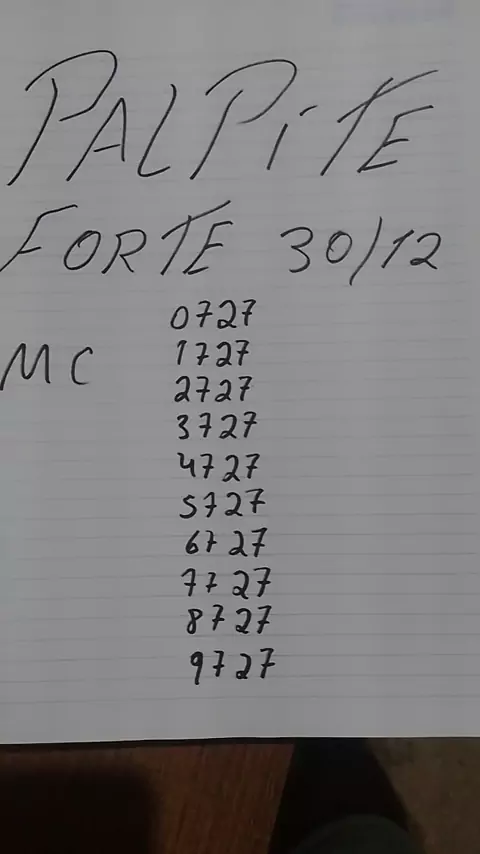 PALPiTE
FORTE 30/12
0727
MC 1727
2727
3727
4727
5727
6727
7727
8727
9727